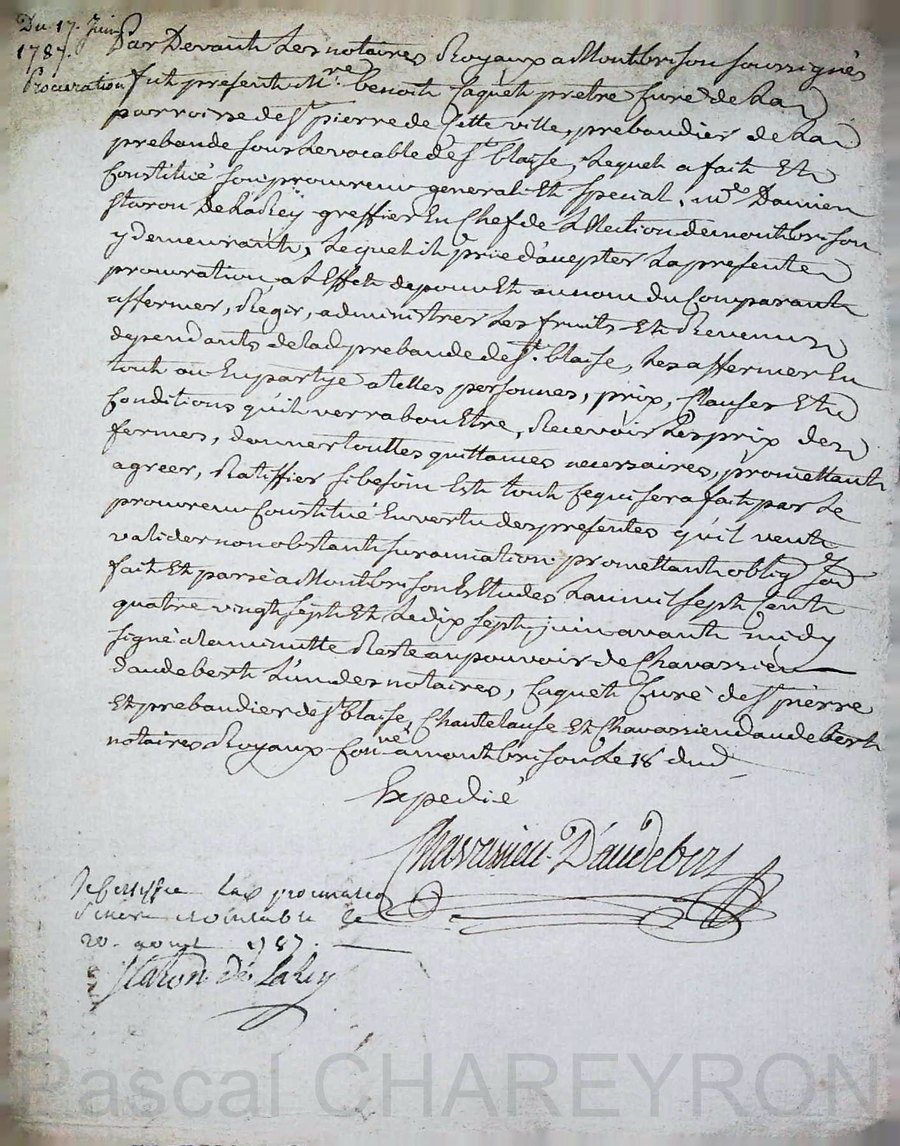 Du 17. Juin
1787.
Procuration
Par Devant Les notaires Royaux a Montbrison soussignés
fut present Mre. benoit Caquet pretre Curé de La
parroisse de St pierre de Cette ville, prebandier de La
prebande sous Le vocable de St blaise, Lequel a fait Et
Constitué son procureur general Et special, Me Damien
Staron DeLaRey greffier En Chef de L'Election de montbrison
y demeurant, Lequel il prie d'accepter La presente
procuration a L'Effet de pour Et au nom du Comparant
affermer, Regir, administrer Les fruits Et Revenus
dependants de lad prebande de St. blaise, Les affermer En
tout ou En partye a telles personnes, prix, Clauses Et
Conditions qu'il verra bon Etre, Recevoir Les prix des
fermes, donner touttes quittances necessaires, promettant
agreer, Ratiffier si besoin Est tout Ce qui sera fait par Le
procureur Constitué En vertu des presentes qu'il veut
valider nonobstant surannation promettant oblig
fait Et passé a Montbrison Es Etudes L'an mil sept Cent
quatre vingt sept Et Le dix sept juin avant midy
signé a la minutte Reste au pouvoir de Chavassieu
Daudebert L'un des notaires, Caquet Curé de St pierre
Et prebandier de St blaise, Chantelause Et Chavassieu Daudebert
notaires Royaux Con.né a montbrison Le 18 dud
Expedié
Chavassieu D'audebert
Je Certiffie La procuration
sincere Et veritable Ce
20. aout 1787.
Staron de LaRey
Pascal CHAREYRON